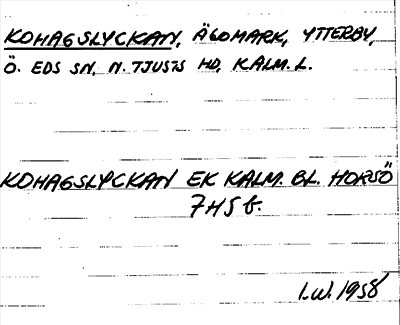 KOHAGSLYCKAN, ÄGOMARK, YTTERBY,
Ö. EDS SN, N. TJUSTS HD, KALM. L.
KOHAGSLYCKAN EK KALM. BL. HORSÖ
7H5f.
I.W. 1958